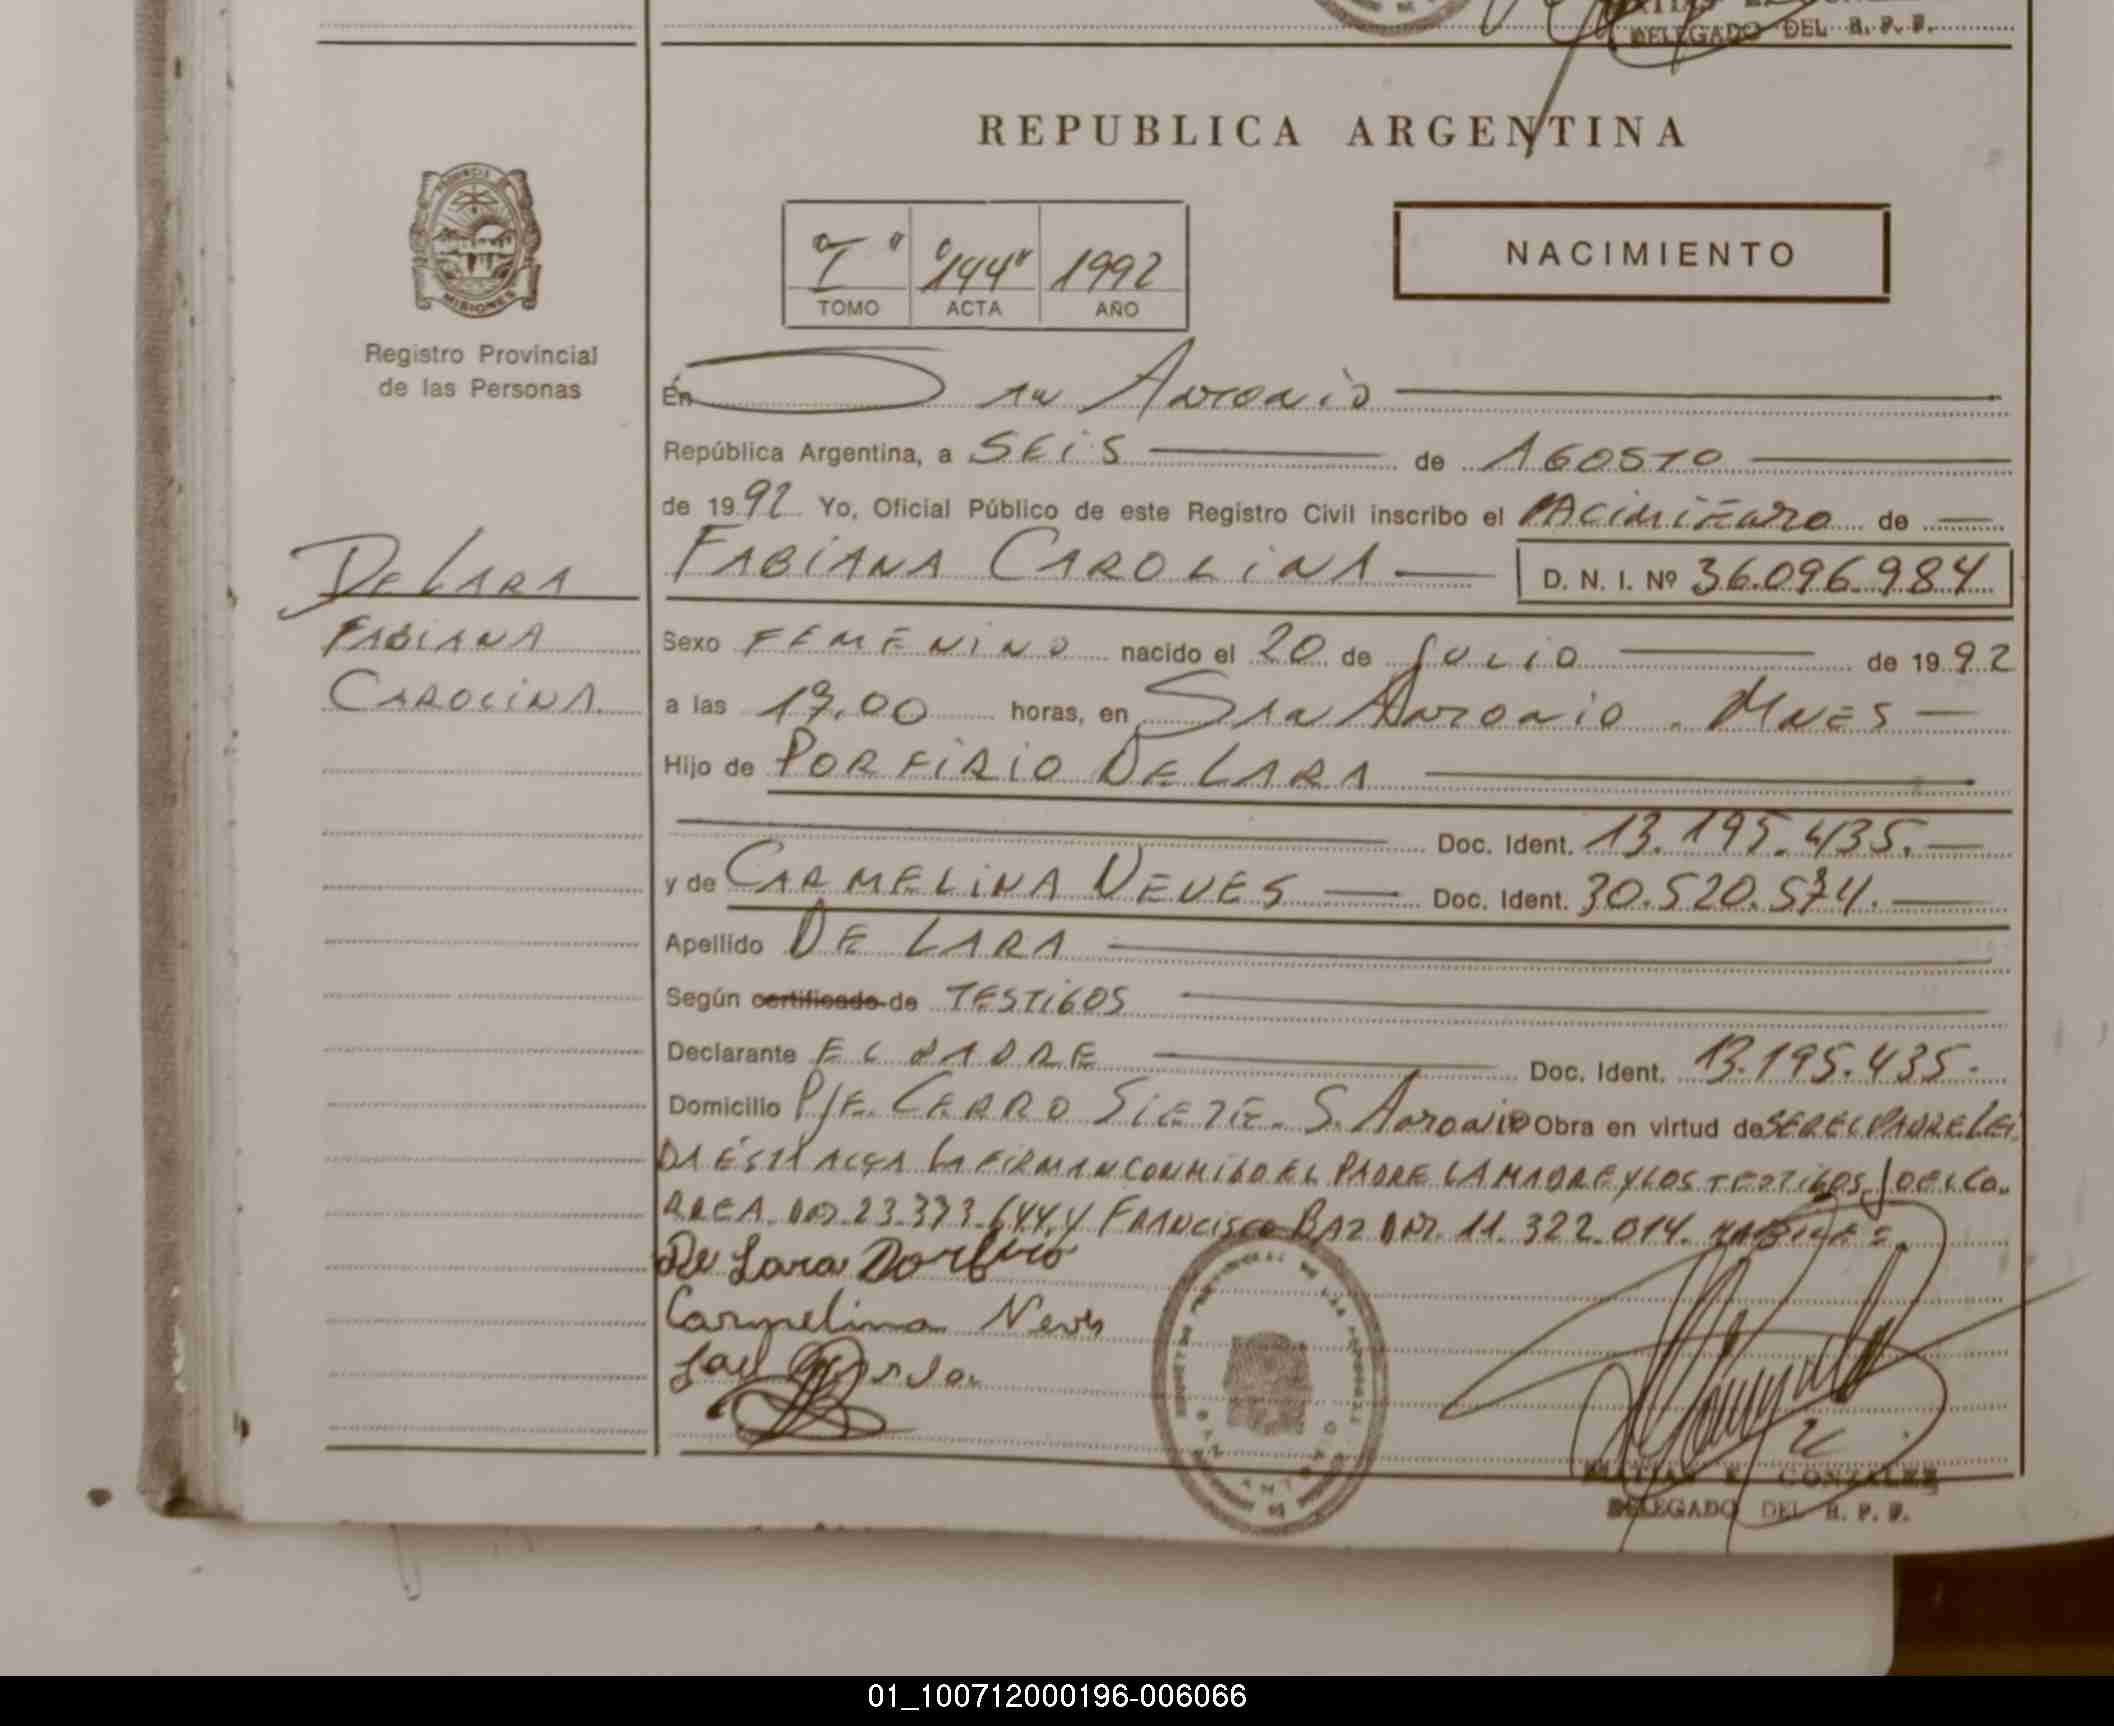 DELEGADO DEL R. P. P.
REPUBLICA ARGENTINA
PROVINCIA DE
MISIONES
Registro Provincial
de las Personas
"I" "144" 1992
TOMO ACTA AÑO
NACIMIENTO
En San Antonio
República Argentina, a SEIS de AGOSTO
de 1992 Yo, Oficial Público de este Registro Civil inscribo el NACIMIENTO de
DE LARA
FABIANA
CAROLINA
FABIANA CAROLINA D. N. I. Nº 36.096.984
Sexo FEMENINO nacido el 20 de JULIO de 1992
a las 17.00 horas, en SAN ANTONIO. MNES
Hijo de PORFIRIO DE LARA
Doc. Ident. 13.195.435.
y de CARMELINA NEVES Doc. Ident. 30.520.574.
Apellido DE LARA
Según certificado de TESTIGOS
Declarante EL PADRE Doc. Ident. 13.195.435.
Domicilio PJE. CERRO SIETE. S. ANTONIO Obra en virtud de SER EL PADRE LEI
DA ÉSTA ACTA LA FIRMAN CONMIGO EL PADRE LA MADRE Y LOS TESTIGOS JOEL CO
RREA DNI 23.373.644 Y FRANCISCO BAZ DNI. 11.322.014.
De Lara Porfirio
Carmelina Neves
MATIAS E. GONZALEZ
DELEGADO DEL R. P. P.
01_100712000196-006066